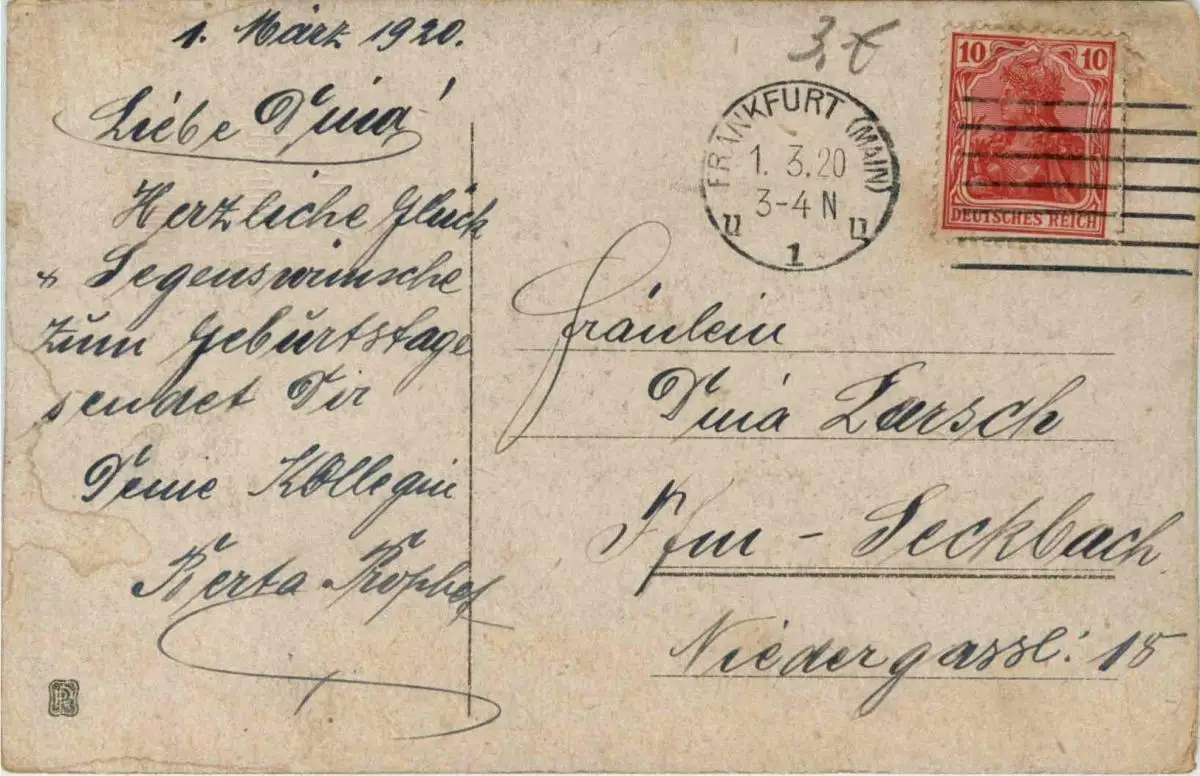 1. März 1920.
Liebe Dina!
Herzliche Glück
& Segenswünsche
zum Geburtstage
sendet Dir
Deine Kollegin
Berta Prophet
3,-€
FRANKFURT (MAIN)
1. 3. 20
3-4 N
1
10 10
DEUTSCHES REICH
Fräulein
Dina Lærsch
Ffm - Seckbach
Niedergasse: 18